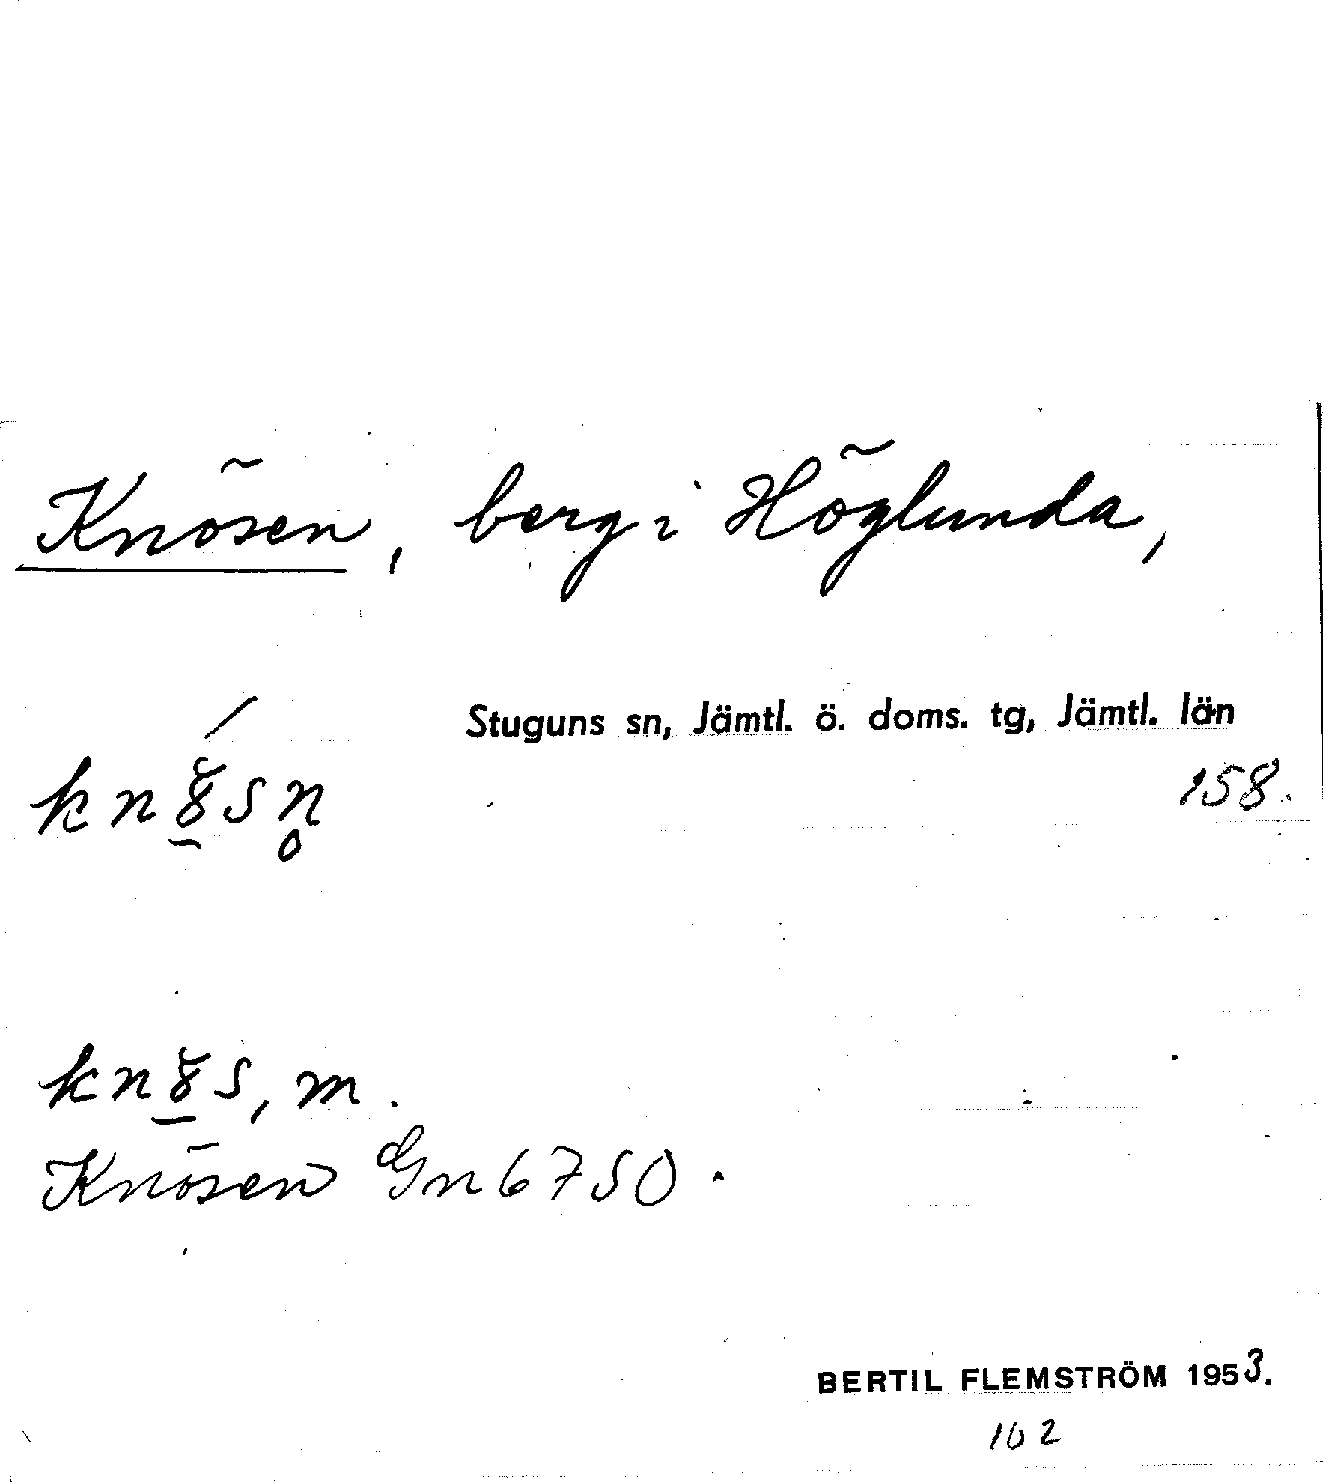 Knösen, berg i Höglunda,
Stuguns sn, Jämtl. ö. doms. tg, Jämtl. län
158.
kn8̲sn̥
kn8̲s, m.
Knösen Gn 6750.
BERTIL FLEMSTRÖM 1953.
102